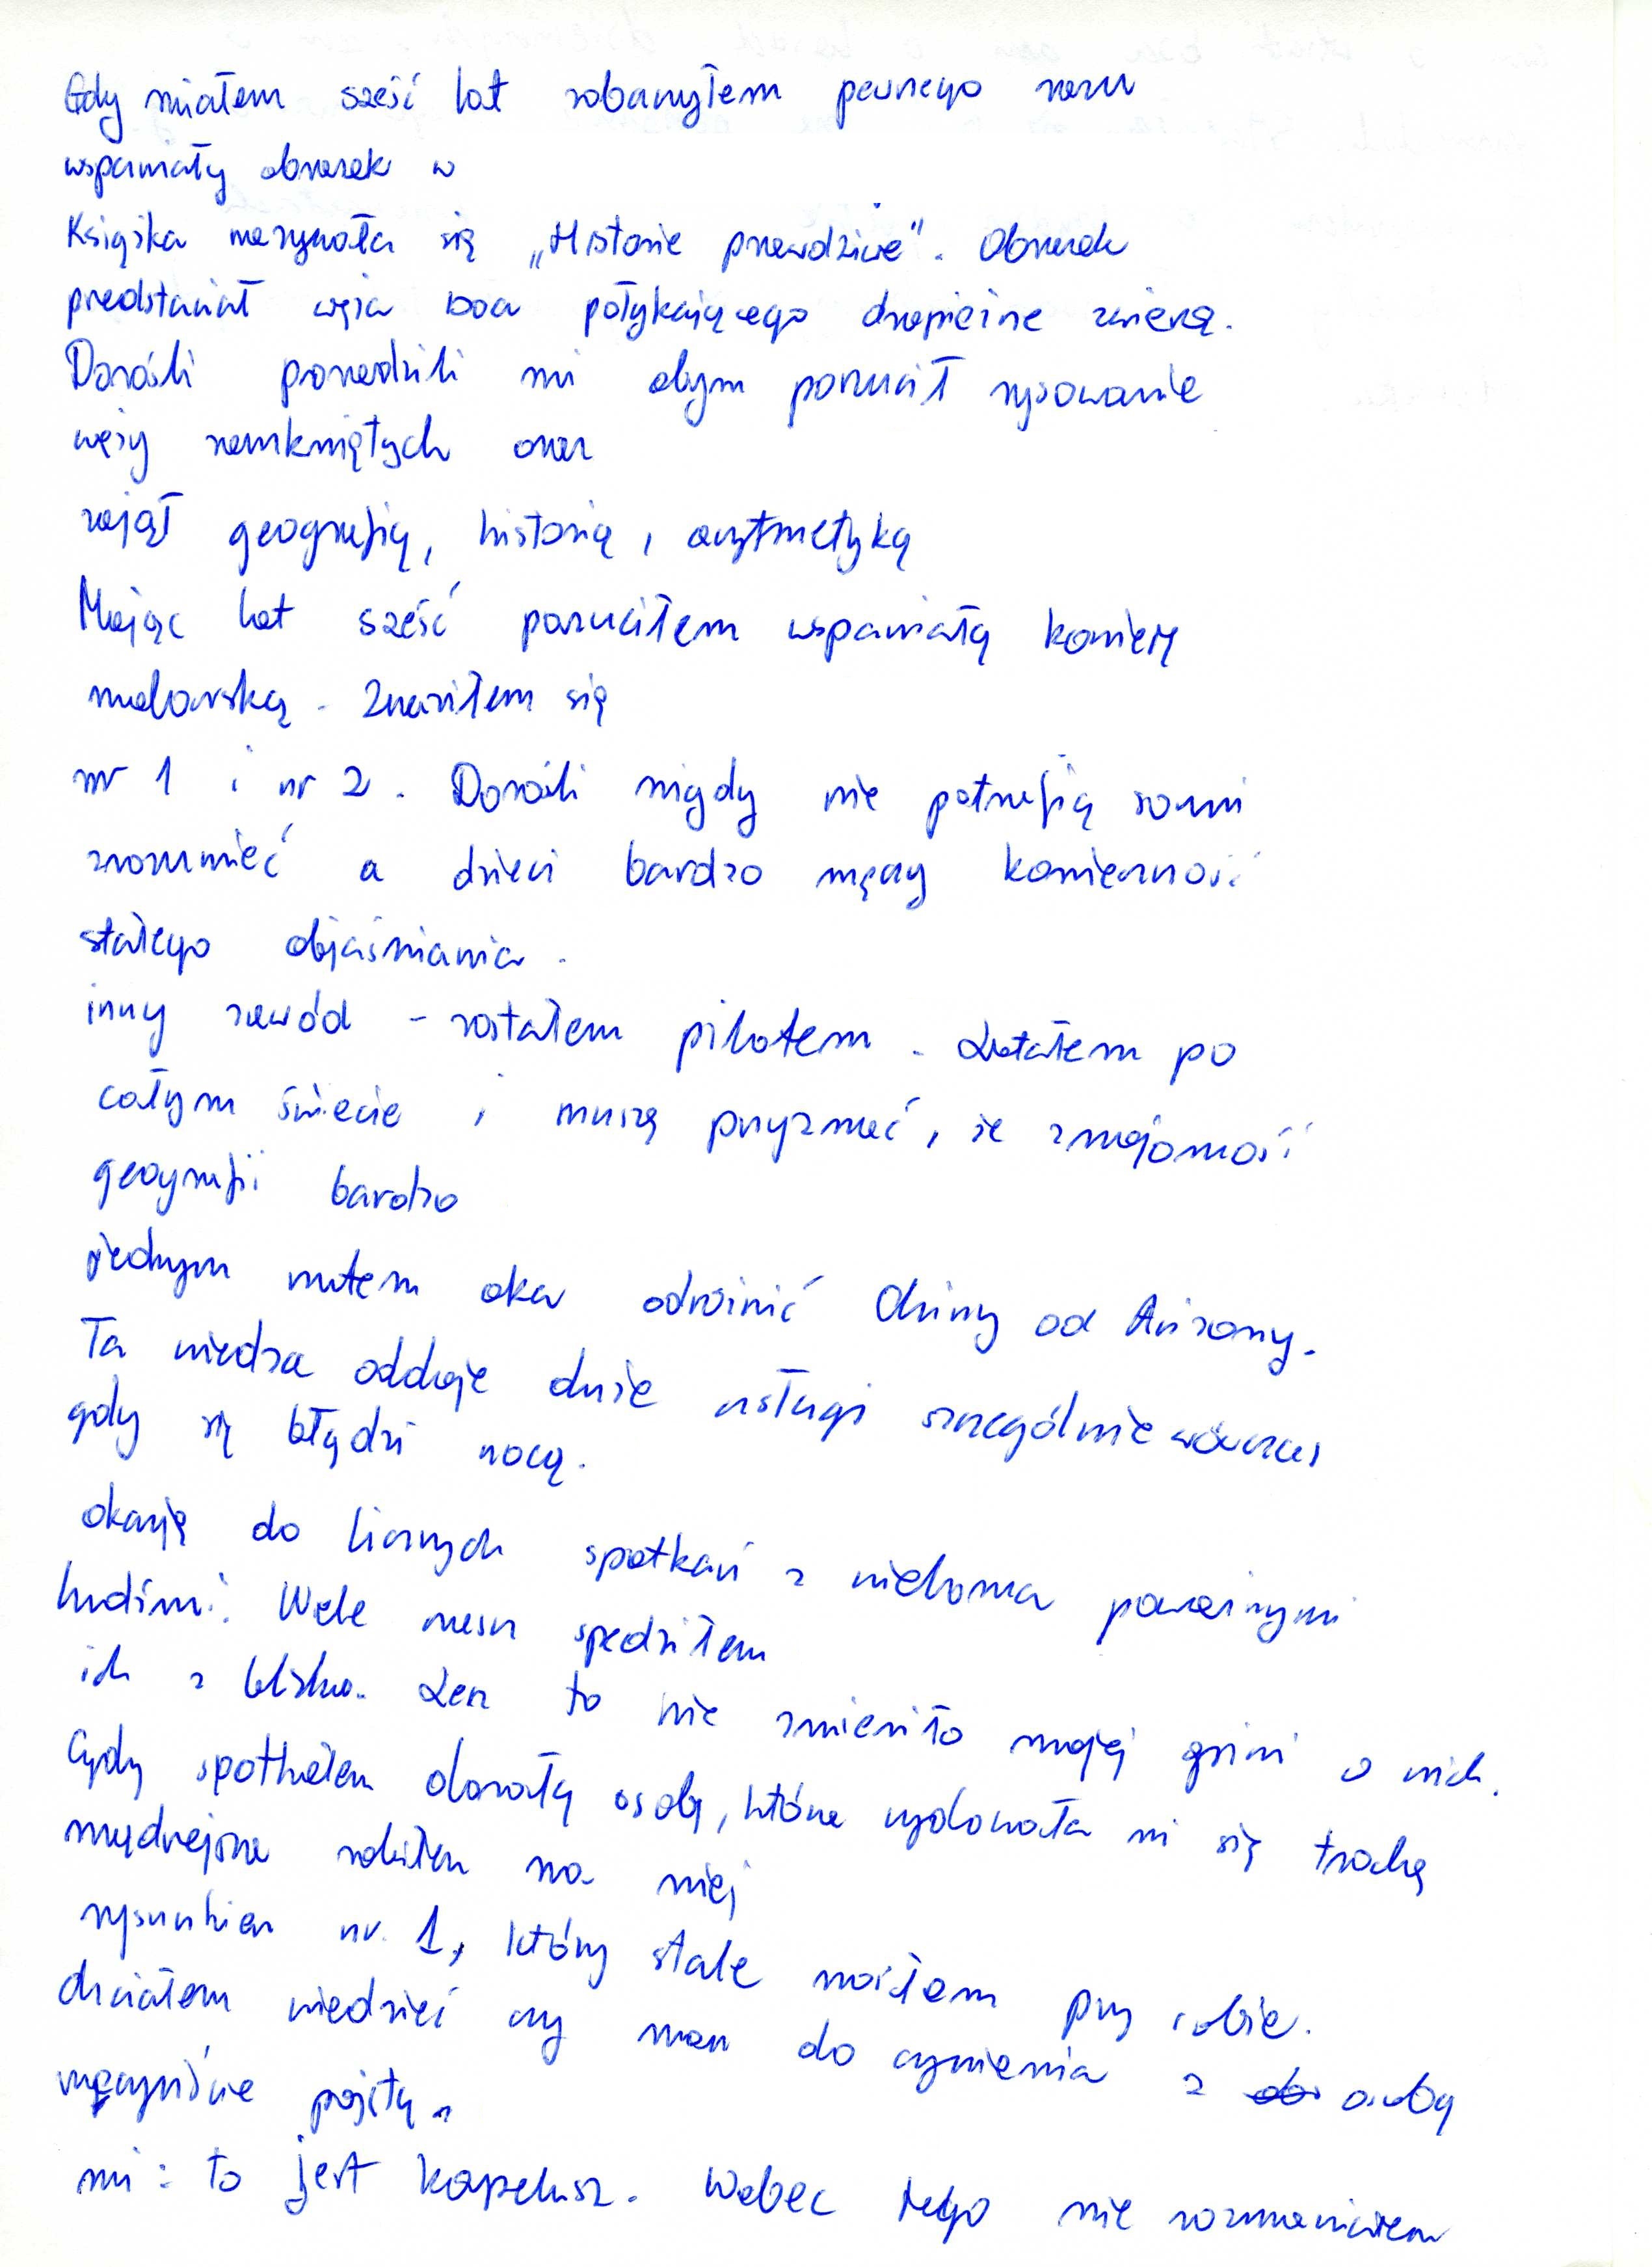 Gdy miałem sześć lat zobaczyłem pewnego razu
wspaniały obrazek w
Książka nazywała się „Historie prawdziwe". Obrazek
przedstawiał węża boa połykającego drapieżne zwierzę.
Dorośli poradzili mi abym porzucił rysowanie
węży zamkniętych oraz
zajął geografią, historią, arytmetyką
Mając lat sześć porzuciłem wspaniałą karierę
malarską. Zraziłem się
nr 1 i nr 2. Dorośli nigdy nie potrafią sami
zrozumieć a dzieci bardzo męczy konieczność
stałego objaśniania.
inny zawód - zostałem pilotem. Latałem po
całym świecie i muszę przyznać, że znajomość
geografii bardzo
jednym rzutem oka odróżnić Chiny od Arizony.
Ta wiedza oddaje duże usługi szczególnie wówczas
gdy się błądzi nocą.
okazję do licznych spotkań z wieloma poważnymi
ludźmi. Wiele czasu spędziłem
ich z bliska. Lecz to nie zmieniło mojej opinii o nich.
Gdy spotkałem dorosłą osobę, która wydawała mi się trochę
mądrzejsza robiłem na niej
rysunkiem nr. 1, który stale nosiłem przy sobie.
chciałem wiedzieć czy mam do czynienia z osobą
rzeczywiście pojętą.
mi: to jest kapelusz. Wobec tego nie rozmawiałem